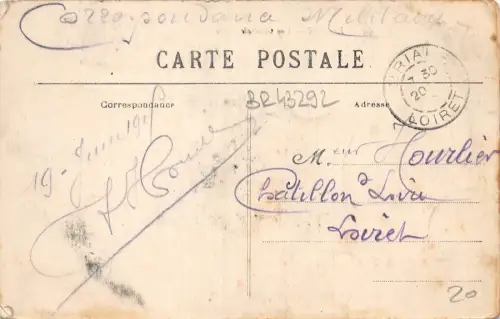 Correspondance Militaire
CARTE POSTALE
Correspondance
Adresse
BR43292
BRIAR
7 30
20
LOIRET
19 - Juin 191
M.eur Hourlier
Châtillon s/ Loire
Loiret
20